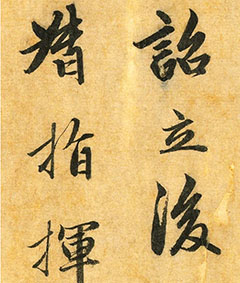 詔立後
指揮